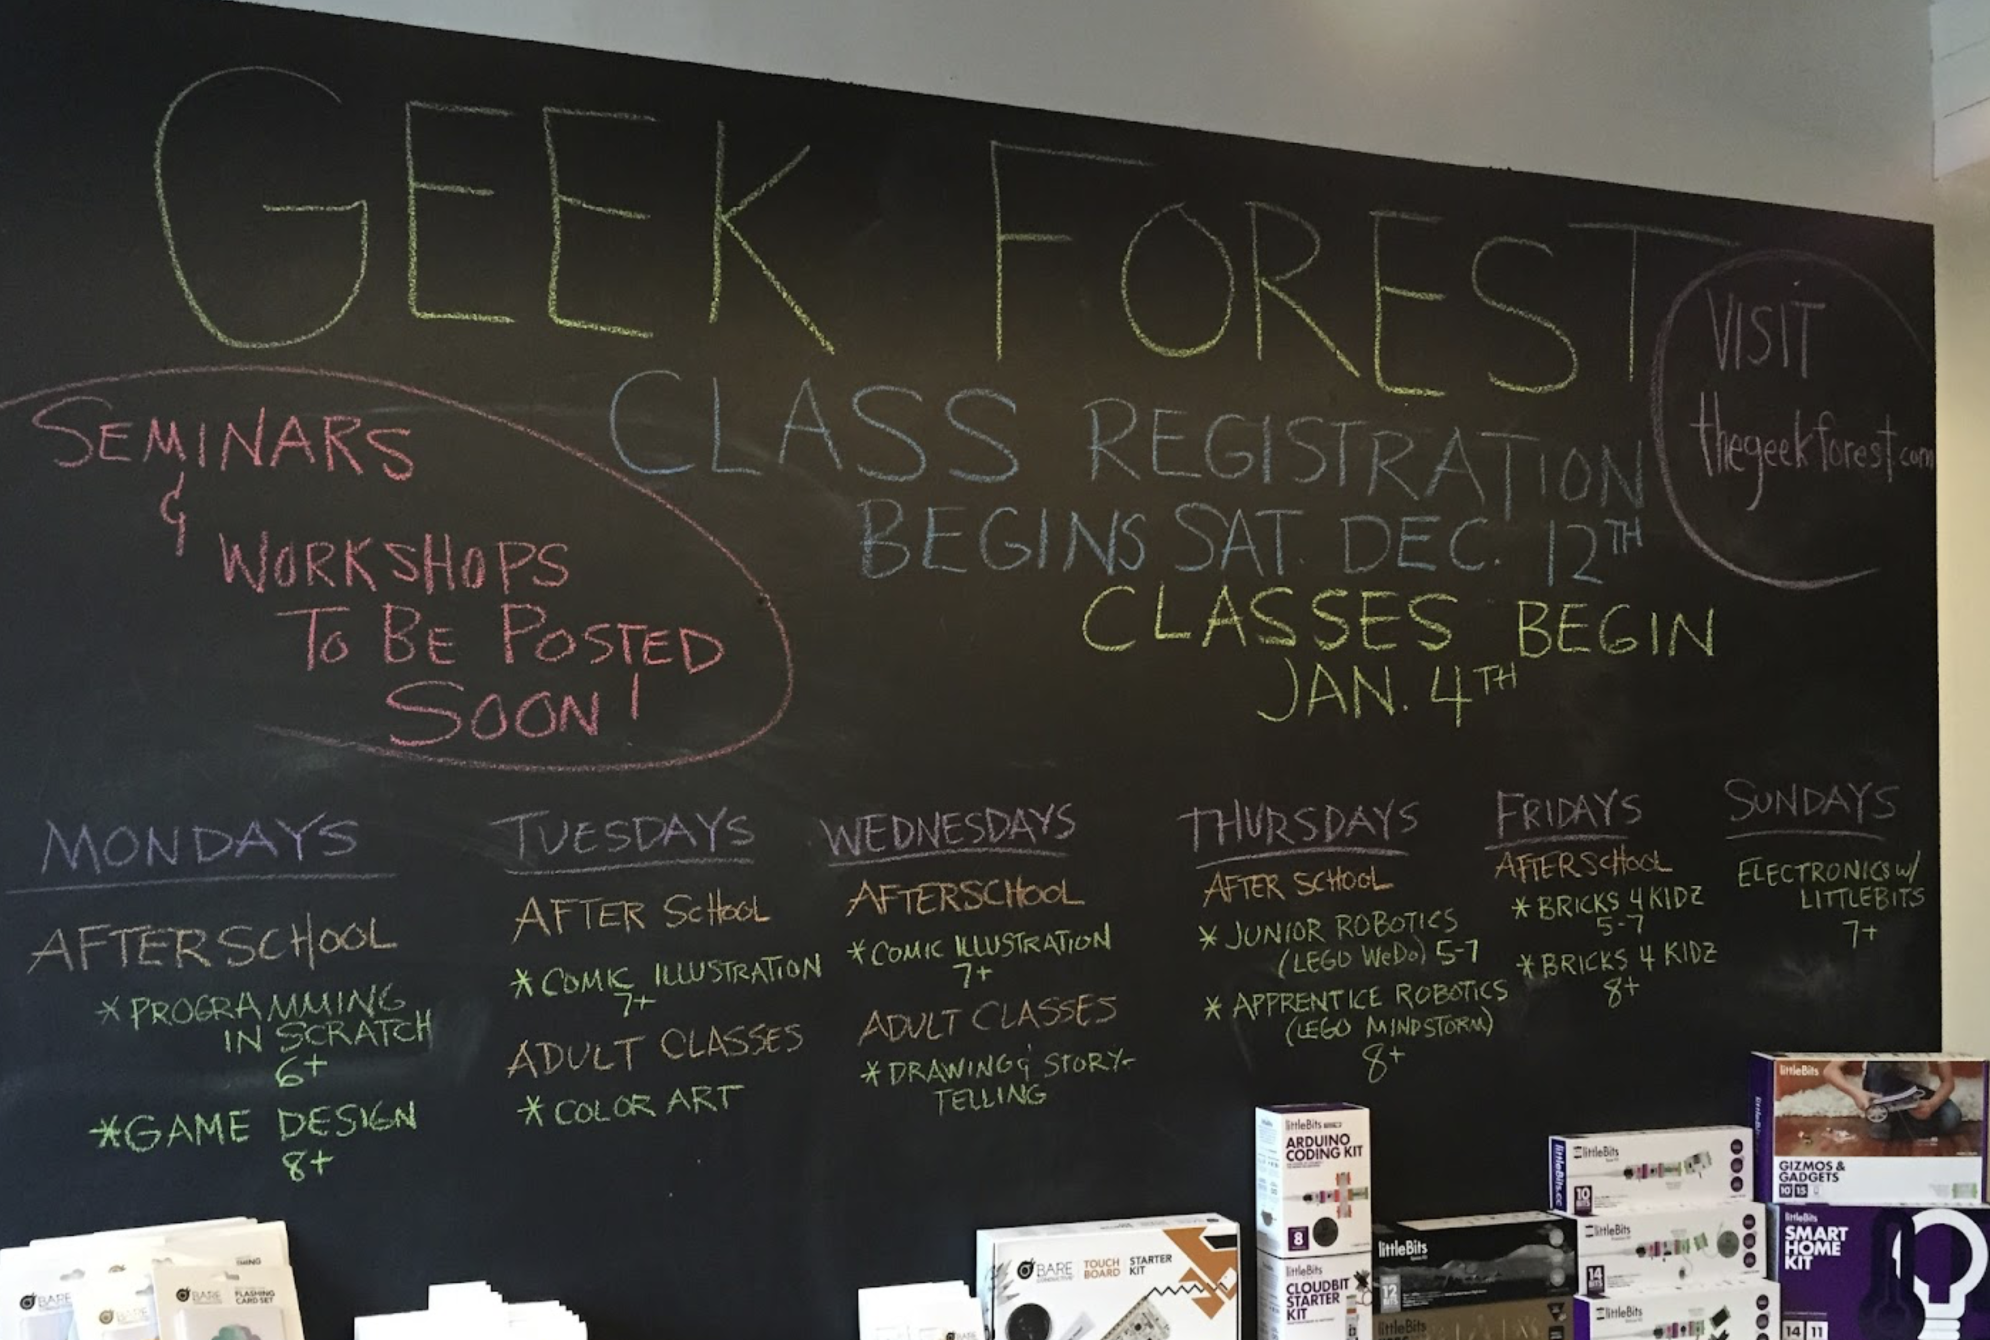 GEEK FOREST
VISIT
thegeekforest.com
SEMINARS
&
WORKSHOPS
TO BE POSTED
SOON!
CLASS REGISTRATION
BEGINS SAT. DEC. 12TH
CLASSES BEGIN
JAN. 4TH
MONDAYS
AFTERSCHOOL
* PROGRAMMING
IN SCRATCH
6+
* GAME DESIGN
8+
TUESDAYS
AFTER SCHOOL
* COMIC ILLUSTRATION
7+
ADULT CLASSES
* COLOR ART
WEDNESDAYS
AFTERSCHOOL
* COMIC ILLUSTRATION
7+
ADULT CLASSES
* DRAWING & STORY-
TELLING
THURSDAYS
AFTER SCHOOL
* JUNIOR ROBOTICS
(LEGO WeDo) 5-7
* APPRENTICE ROBOTICS
(LEGO MINDSTORM)
8+
FRIDAYS
AFTERSCHOOL
* BRICKS 4 KIDZ
5-7
* BRICKS 4 KIDZ
8+
SUNDAYS
ELECTRONICS W/
LITTLEBITS
7+
BARE
BARE
BARE
FLASHING
CARD SET
BARE
CONDUCTIVE
TOUCH
BOARD
STARTER
KIT
BARE
littleBits
ARDUINO
CODING KIT
8
littleBits
CLOUDBIT
STARTER
KIT
littleBits
12
littleBits.cc
littleBits
10
littleBits
14
littleBits
littleBits
littleBits
GIZMOS &
GADGETS
10 15
littleBits
SMART
HOME
KIT
14 11